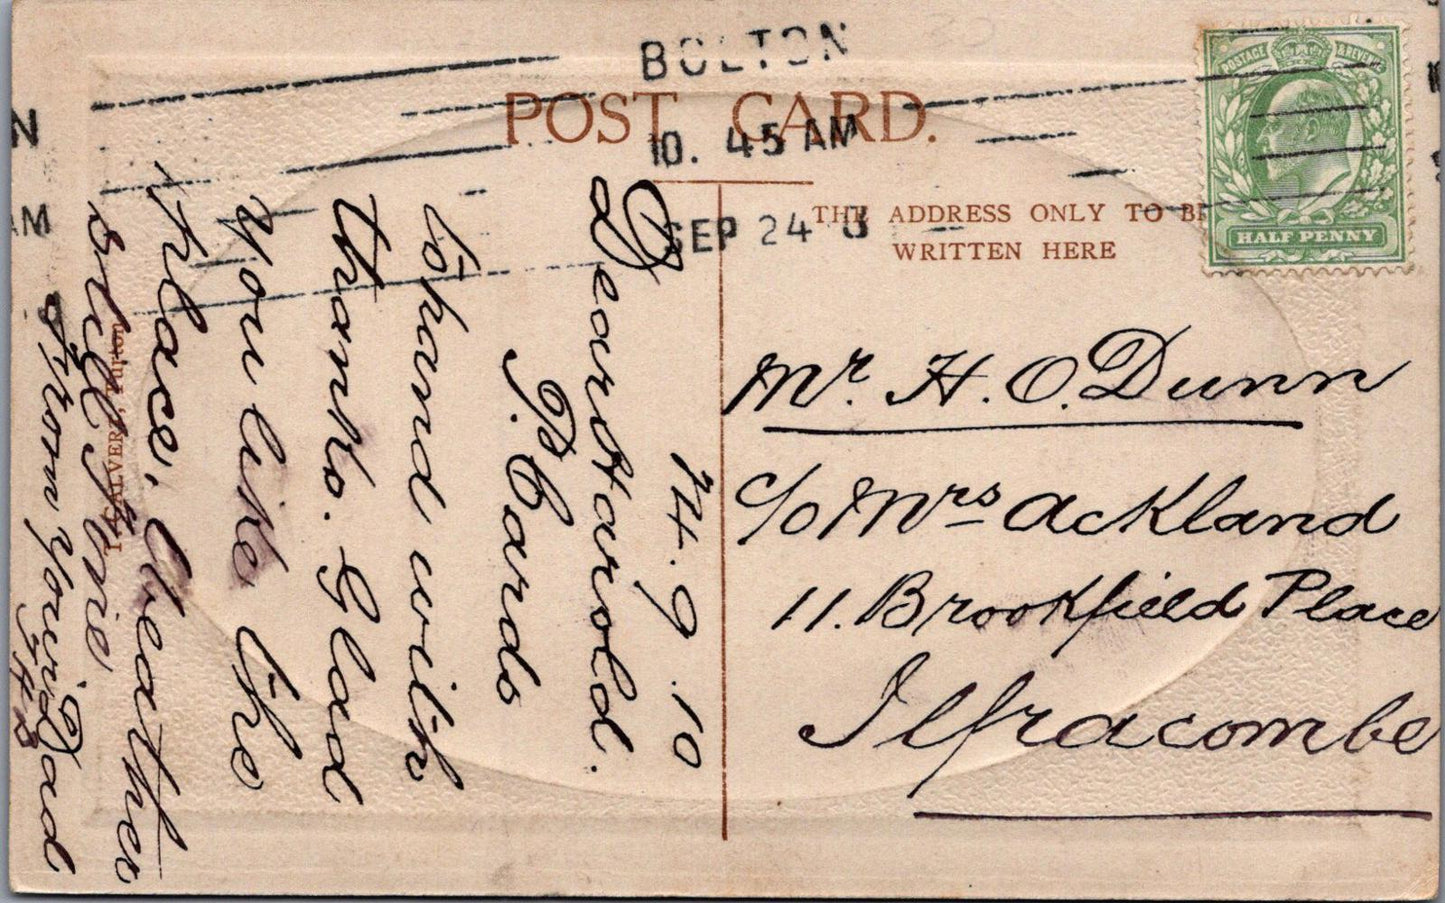 BOLTON
10. 45 AM
SEP 24
N
AM
POST CARD.
THE ADDRESS ONLY TO BE
WRITTEN HERE
POSTAGE & REVENUE
HALF PENNY
Mr. H. O. Dunn
c/o Mrs Ackland
11. Brookfield Place
Ilfracombe
24.9.10
Dear Harold.
P. Cards
to hand with
thanks. Glad
you like the
place, Weather
still fine
from your Dad
CALVERT, Turton